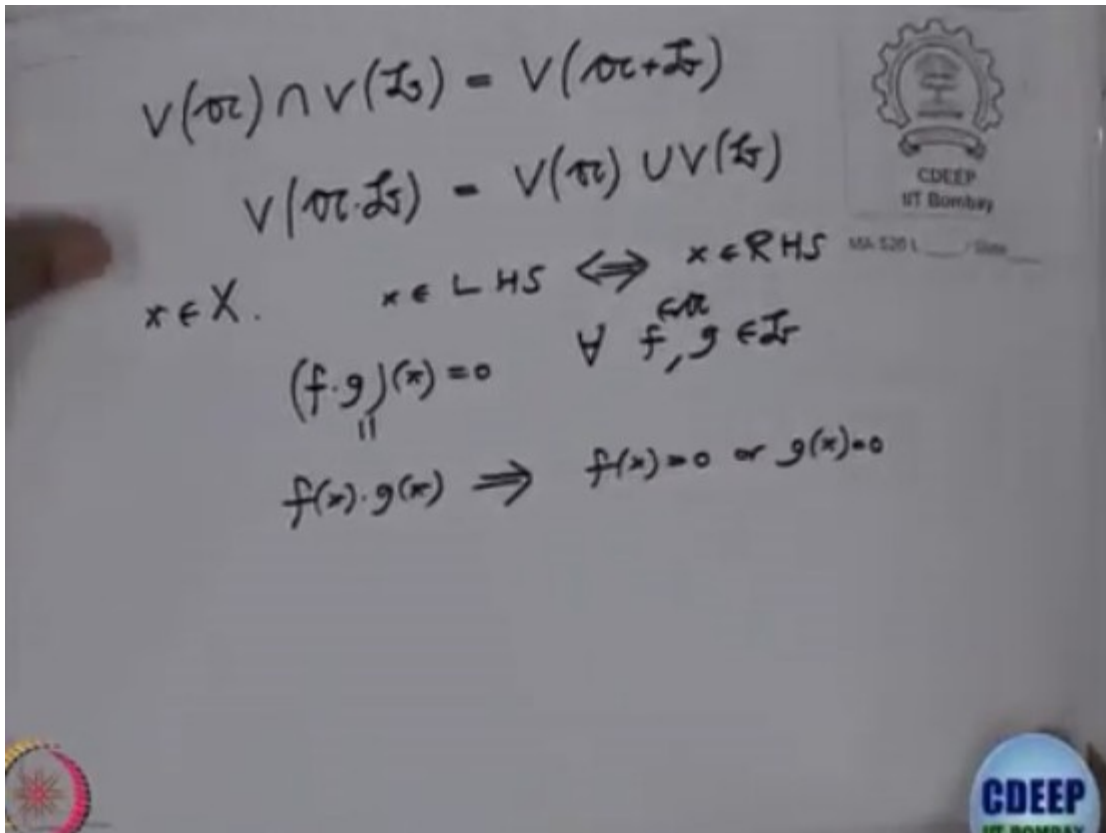 V(𝔞) ∩ V(𝔟) = V(𝔞+𝔟)
V(𝔞·𝔟) = V(𝔞) ∪ V(𝔟)
CDEEP
IIT Bombay
MA 526 L ____ / Slide ____
x ∈ X. x ∈ LHS ⟺ x ∈ RHS
∈𝔞
(f·g)(x) = 0 ∀ f, g ∈ 𝔟
||
f(x)·g(x) ⟹ f(x)=0 or g(x)=0
CDEEP
IIT BOMBAY